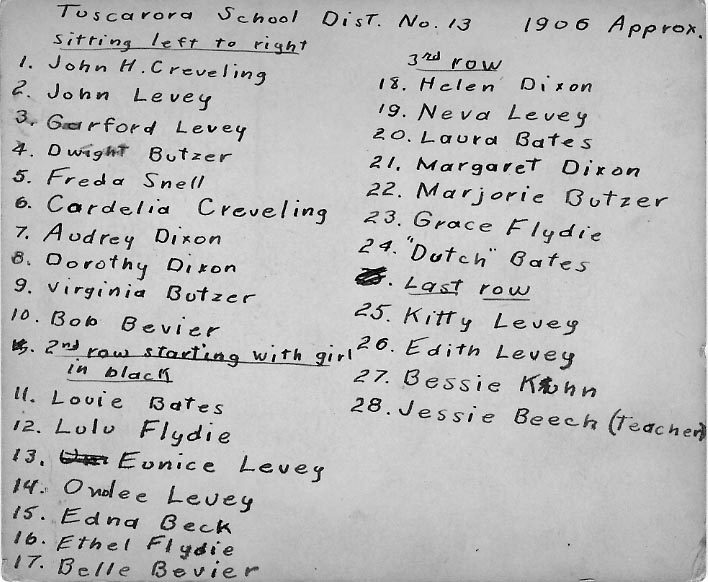 Tuscarora School Dist. No. 13 1906 Approx.
sitting left to right
1. John H. Creveling
2. John Levey
3. Garford Levey
4. Dwight Butzer
5. Freda Snell
6. Cardelia Creveling
7. Audrey Dixon
8. Dorothy Dixon
9. Virginia Butzer
10. Bob Bevier
2nd row starting with girl
in black
11. Louie Bates
12. Lulu Flydie
13. Eunice Levey
14. Ondee Levey
15. Edna Beck
16. Ethel Flydie
17. Belle Bevier
3rd row
18. Helen Dixon
19. Neva Levey
20. Laura Bates
21. Margaret Dixon
22. Marjorie Butzer
23. Grace Flydie
24. "Dutch" Bates
Last row
25. Kitty Levey
26. Edith Levey
27. Bessie Kuhn
28. Jessie Beech (Teacher)